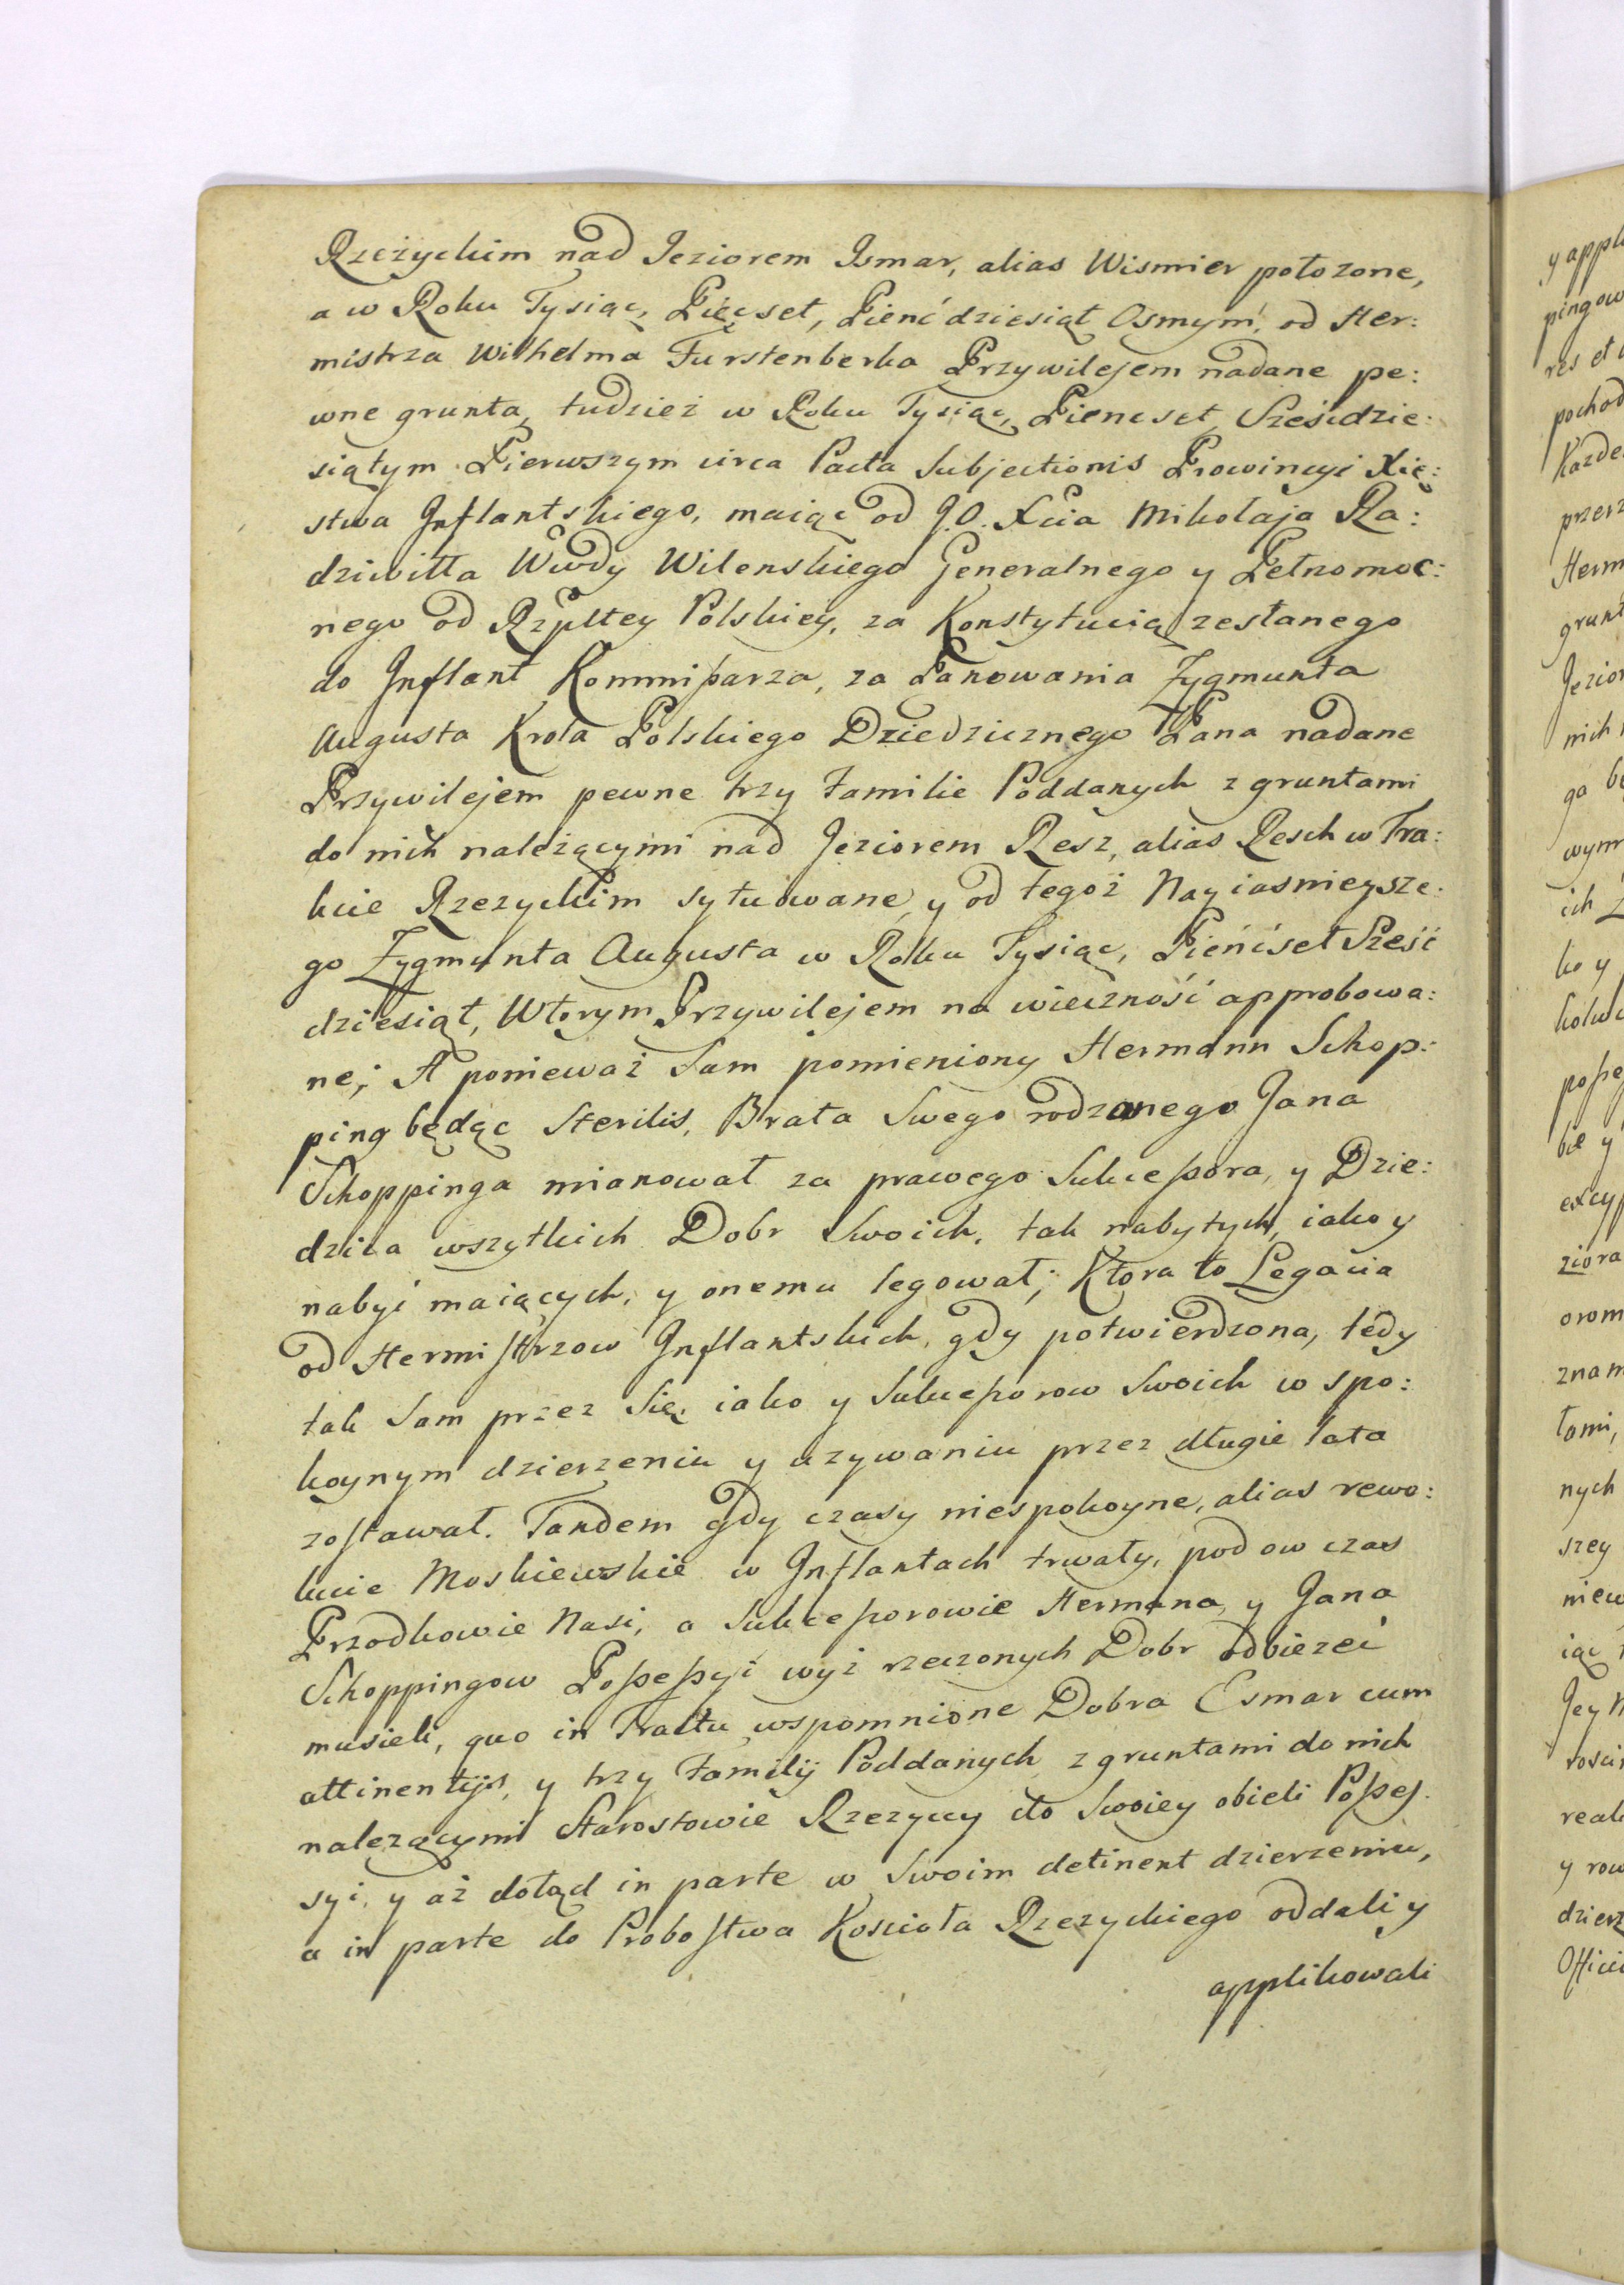 Rzeżyckim nad Jeziorem Ismar, alias Wismier położone,
a w Roku Tysiąc, Pięcset, Pienćdziesiąt Osmym, od Her:
mistrza Wilhelma Furstenberka Przywilejem nadane pe:
wne grunta, tudzież w Roku Tysiąc, Piencset Sześcdzie:
siątym Pierwszym circa Pacta Subjectionis Prowincyi Xię:
stwa Inflantskiego, maiąc od J.O. Xcia Mikołaja Ra:
dziwiłła Wwdy Wilenskiego Generalnego y Pełnomoc:
nego od Rzpltey Polskiey, za Konstytucią zesłanego
do Inflant Kommißarza, za Panowania Zygmunta
Augusta Krola Polskiego Dziedzicznego Pana nadane
Przywilejem pewne trzy Familie Poddanych z gruntami
do nich należącymi nad Jeziorem Resz, alias Resch w Tra:
kcie Rzezyckim sytuowane, y od tegoż Nayiasnieysze:
go Zygmunta Augusta w Roku Tysiąc, Pieńcset Sześć
dziesiąt, Wtorym Przywilejem na wieczność approbowa:
ne; A ponieważ Sam pomieniony Hermann Schop:
ping będąc Sterilis, Brata Swego rodzonego Jana
Schoppinga mianował za prawego Sukceßora, y Dzie:
dzica wszytkich Dobr Swoich, tak nabytych, iako y
nabyć maiących, y onemu legował; Ktora to Legacia
od Hermistrzow Inflantskich, gdy potwierdzona, tedy
tak Sam przez Się, iako y Sukceßorow Swoich w spo:
koynym dzierzeniu y uzywaniu przez długie lata
zostawał. Tandem gdy czasy niespokoyne, alias rewo:
lucie Moskiewskie w Inflantach trwały, pod ow czas
Przodkowie Nasi, a Sukceßorowie Hermana, y Jana
Schoppingow Poßeßyi wyż rzeczonych Dobr odbiezeć
musieli, quo in Tractu wspomnione Dobra Esmar cum
attinentijs, y trzy Familij Poddanych z gruntami do nich
nalezącymi Starostowie Rzezyccy do Swoiey obieli Poßes.
syi, y aż dotąd in parte w Swoim detinent dzierzeniu,
a in parte do Probostwa Kosciola Rzezyckiego oddali y
applikowali
y appli
pingow
res et
pochod
Kazde
przerz
Herm
grunt
Jezior
nich
ga bę
wym
ich
ko y
kolwi
poße
be y
excyp
ziora
orom
znam
tami,
nych
szey
niew
iąc
Jey
rosci
reali
y row
dzierz
Offici